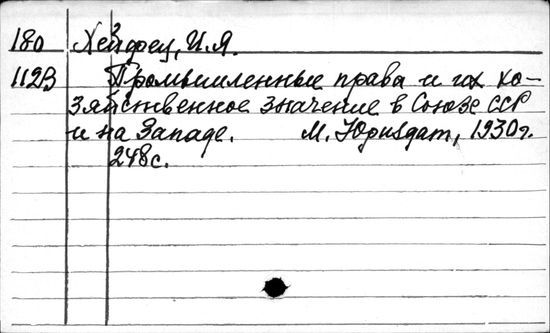 180 Хейфец, И.Я.
112В Промышленные права и их хо-
зяйственное значение в Союзе ССР
и на Западе. М. Юриздат, 1930г.
248с.